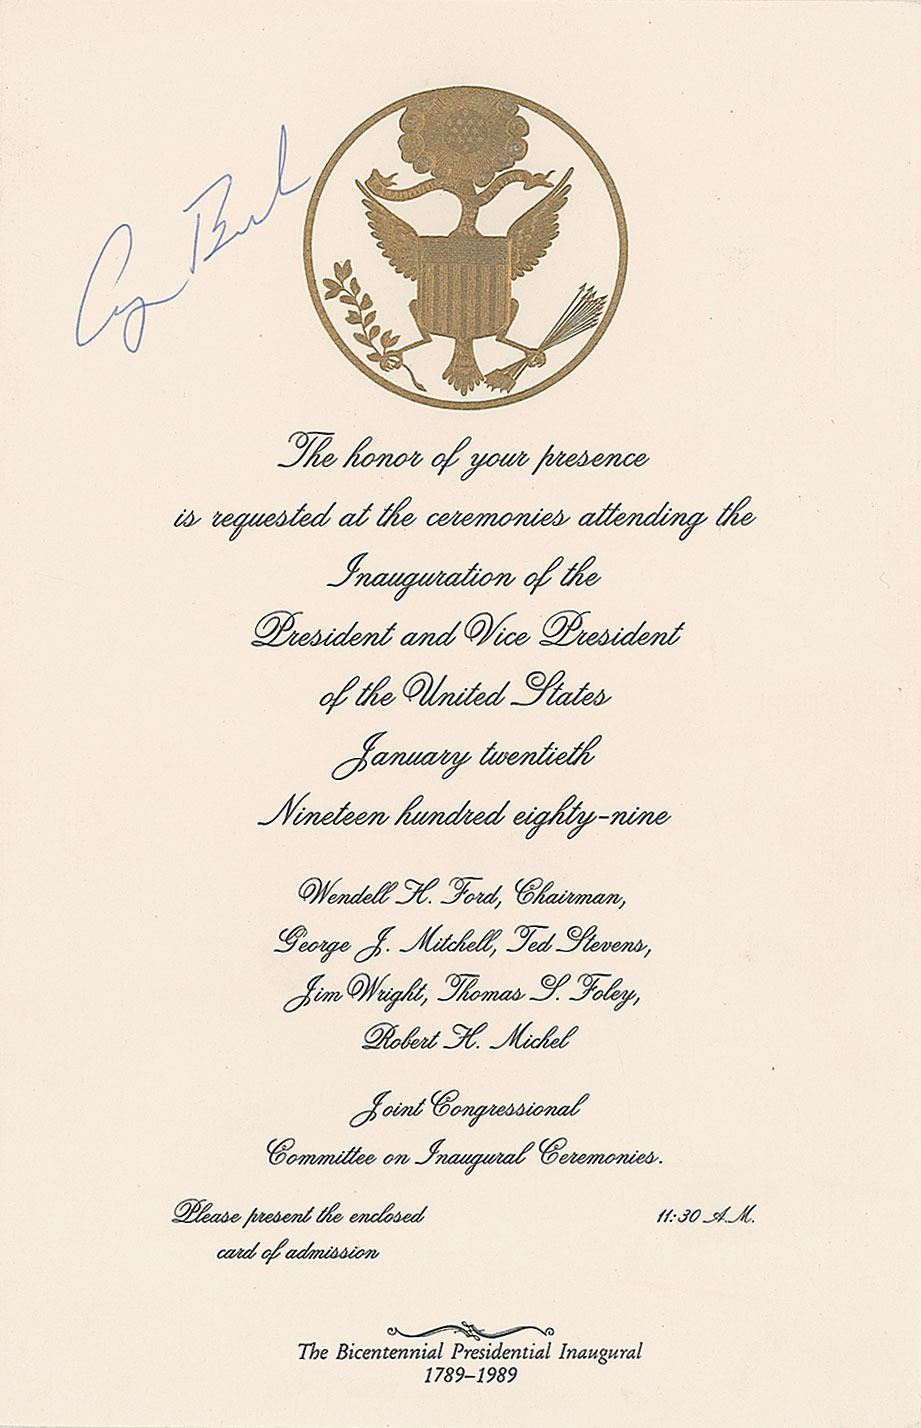 George Bush
The honor of your presence
is requested at the ceremonies attending the
Inauguration of the
President and Vice President
of the United States
January twentieth
Nineteen hundred eighty-nine
Wendell H. Ford, Chairman,
George J. Mitchell, Ted Stevens,
Jim Wright, Thomas S. Foley,
Robert H. Michel
Joint Congressional
Committee on Inaugural Ceremonies.
Please present the enclosed
card of admission
11:30 A.M.
The Bicentennial Presidential Inaugural
1789–1989